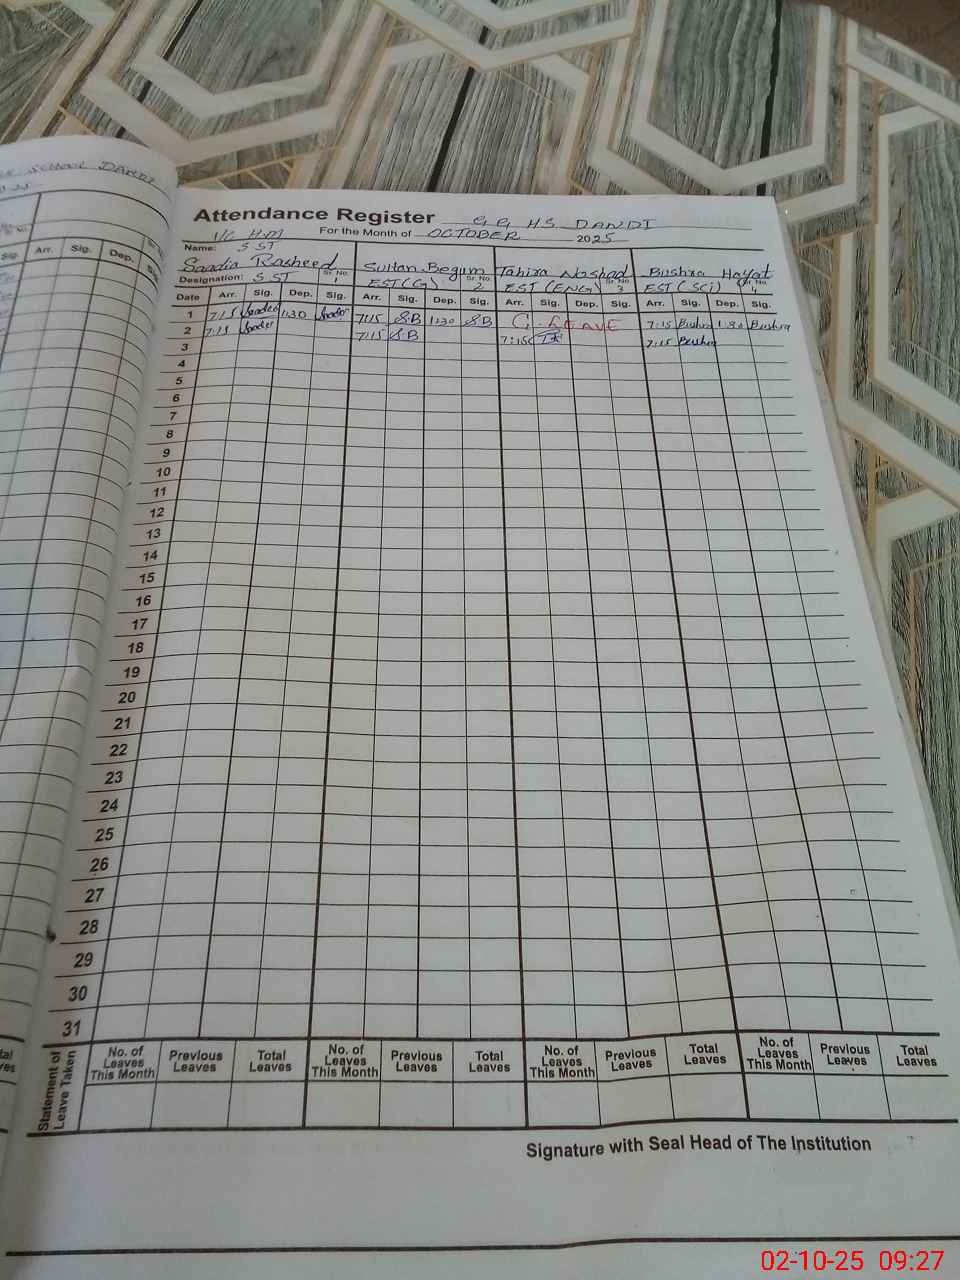 SCHOOL DANDI
Attendance Register G G HS DANDI
I/C H.M For the Month of OCTOBER 2025
Name: SST
Saadia Rasheed Sultan Begum Tahira Nashad Bushra Hayat
Designation: SST Sr. No. 1 EST (G) Sr. No. 2 EST (ENG) Sr. No. 3 EST (Sci) Sr. No. 4
Arr. Sig. Dep.
Date Arr. Sig. Dep. Sig. Arr. Sig. Dep. Sig. Arr. Sig. Dep. Sig. Arr. Sig. Dep. Sig.
1 7:15 Saadia 1:30 Saadia 7:15 S.B 1:30 S.B C. LEAVE 7:15 Bushra 1:30 Bushra
2 7:15 Saadia 7:15 S.B 7:15 7:15 Bushra
3
4
5
6
7
8
9
10
11
12
13
14
15
16
17
18
19
20
21
22
23
24
25
26
27
28
29
30
31
Statement of Leave Taken
No. of Leaves This Month Previous Leaves Total Leaves No. of Leaves This Month Previous Leaves Total Leaves No. of Leaves This Month Previous Leaves Total Leaves No. of Leaves This Month Previous Leaves Total Leaves
Signature with Seal Head of The Institution
02-10-25 09:27